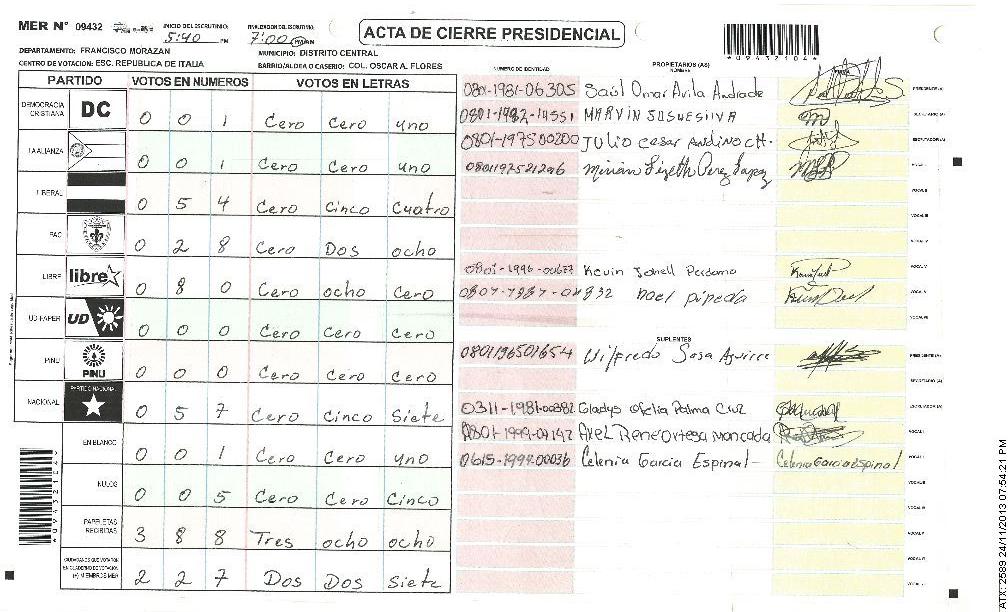 MER N° 09432
INICIO DEL ESCRUTINIO: 5:40 PM
FINALIZACION DEL ESCRUTINIO: 7:00 PM
ACTA DE CIERRE PRESIDENCIAL
*09432104*
DEPARTAMENTO: FRANCISCO MORAZAN
MUNICIPIO: DISTRITO CENTRAL
CENTRO DE VOTACION: ESC. REPUBLICA DE ITALIA
BARRIO/ALDEA O CASERIO: COL. OSCAR A. FLORES
PARTIDO VOTOS EN NUMEROS VOTOS EN LETRAS
DEMOCRACIA CRISTIANA DC 0 0 1 Cero Cero uno
LA ALIANZA 0 0 1 Cero Cero uno
LIBERAL 0 5 4 Cero Cinco Cuatro
PAC 0 2 8 Cero Dos ocho
LIBRE libre 0 8 0 Cero ocho Cero
UD FAPER UD 0 0 0 Cero Cero Cero
PINU PINU 0 0 0 Cero Cero Cero
NACIONAL PARTIDO NACIONAL 0 5 7 Cero Cinco Siete
EN BLANCO 0 0 1 Cero Cero uno
NULOS 0 0 5 Cero Cero Cinco
PAPELETAS RECIBIDAS 3 8 8 Tres ocho ocho
CIUDADANOS QUE VOTARON EN CUADERNO DE VOTACION (+) MIEMBROS MER 2 2 7 Dos Dos Siete
NUMERO DE IDENTIDAD
PROPIETARIOS (AS)
NOMBRE
FIRMA
0801-1981-06305 Saúl Omar Avila Andrade PRESIDENTE (A)
0801-1982-14551 MARVIN SECRETARIO (A)
0801-1975 00200 Julio Cesar Andino CH. ESCRUTADOR (A)
0801197521206 Mirian Lizeth Perez Lopez VOCAL I
VOCAL II
VOCAL III
VOCAL IV
0801-1996-00677 Kevin Perdomo VOCAL V
noel pineda
SUPLENTES
0801196501654 Wilfredo Sosa Aguirre PRESIDENTE (A)
SECRETARIO (A)
0311-1981-00382 Gladys Ofelia Palma Cruz ESCRUTADOR (A)
Axel Rene Ortega Moncada VOCAL I
0615-1994-00036 Celenia Garcia Espinal Celenia Garcia Espinal VOCAL II
VOCAL III
VOCAL IV
VOCAL V
ATX: 2589 24/11/2013 07:54:21 PM